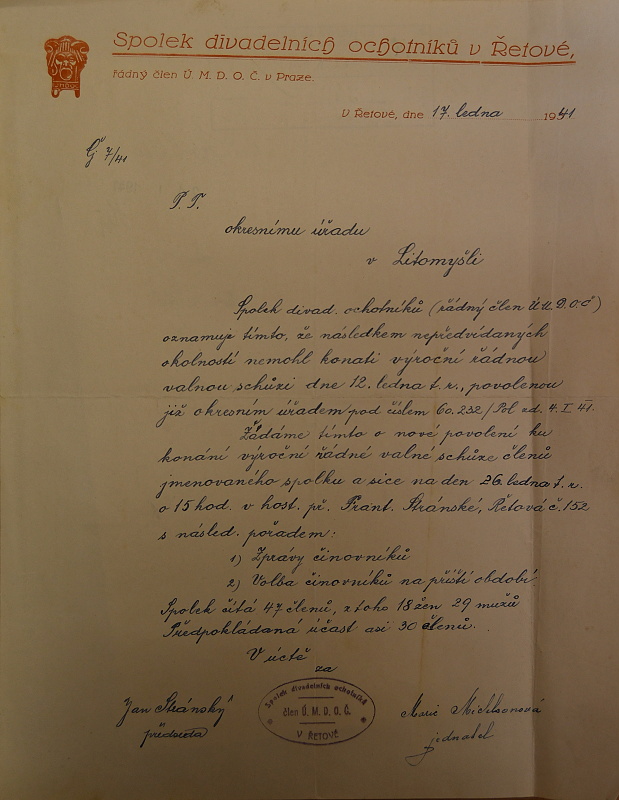 Spolek divadelních ochotníků v Řetové,
řádný člen Ú. M. D. O. Č. v Praze.
V Řetové, dne 17. ledna 1941
Č 7/41
P. T.
okresnímu úřadu
v Litomyšli
Spolek divad. ochotníků (řádný člen Ú.M.D.O.Č)
oznamuje tímto, že následkem nepředvídaných
okolností nemohl konati výroční řádnou
valnou schůzi dne 12. ledna t. r., povolenou
již okresním úřadem pod číslem 60.232/Pol zd. 4. I 41.
Žádáme tímto o nové povolení ku
konání výroční řádné valné schůze členů
jmenovaného spolku a sice na den 26. ledna t. r.
o 15 hod. v host. př. Frant. Stránské, Řetová č. 152
s násled. pořadem:
1) Zprávy činovníků
2) Volba činovníků na příští období
Spolek čítá 47 členů, z toho 18 žen 29 mužů
Předpokládaná účast asi 30 členů.
V úctě
za
Spolek divadelních ochotníků
člen Ú. M. D. O. Č.
V ŘETOVÉ
Jan Stránský
předseda
Marie
jednatel